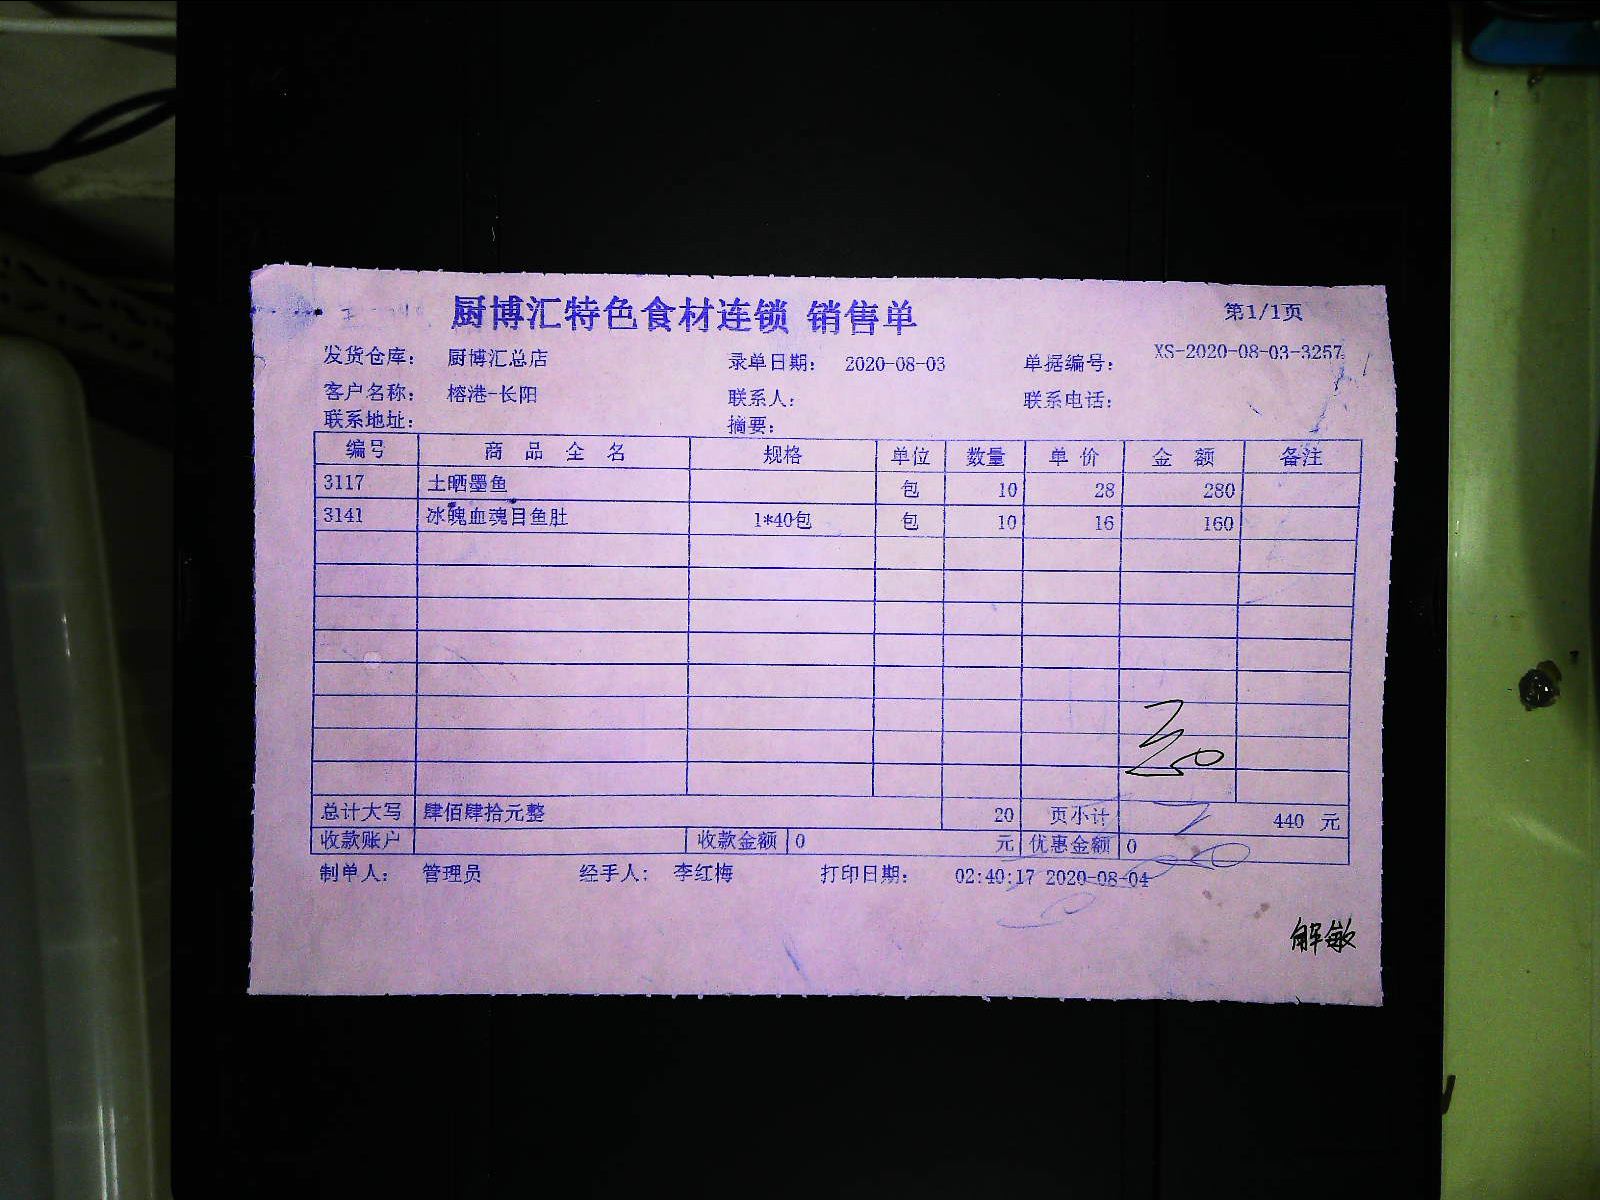 厨博汇特色食材连锁 销售单 第1/1页
发货仓库： 厨博汇总店 录单日期： 2020-08-03 单据编号： XS-2020-08-03-3257
客户名称： 榕港-长阳 联系人： 联系电话：
联系地址： 摘要：
编号 商品全名 规格 单位 数量 单价 金额 备注
3117 土晒墨鱼 包 10 28 280
3141 冰魄血魂目鱼肚 1*40包 包 10 16 160
总计大写 肆佰肆拾元整 20 页小计 440 元
收款账户 收款金额 0 元 优惠金额 0
制单人： 管理员 经手人： 李红梅 打印日期： 02:40:17 2020-08-04
解敏